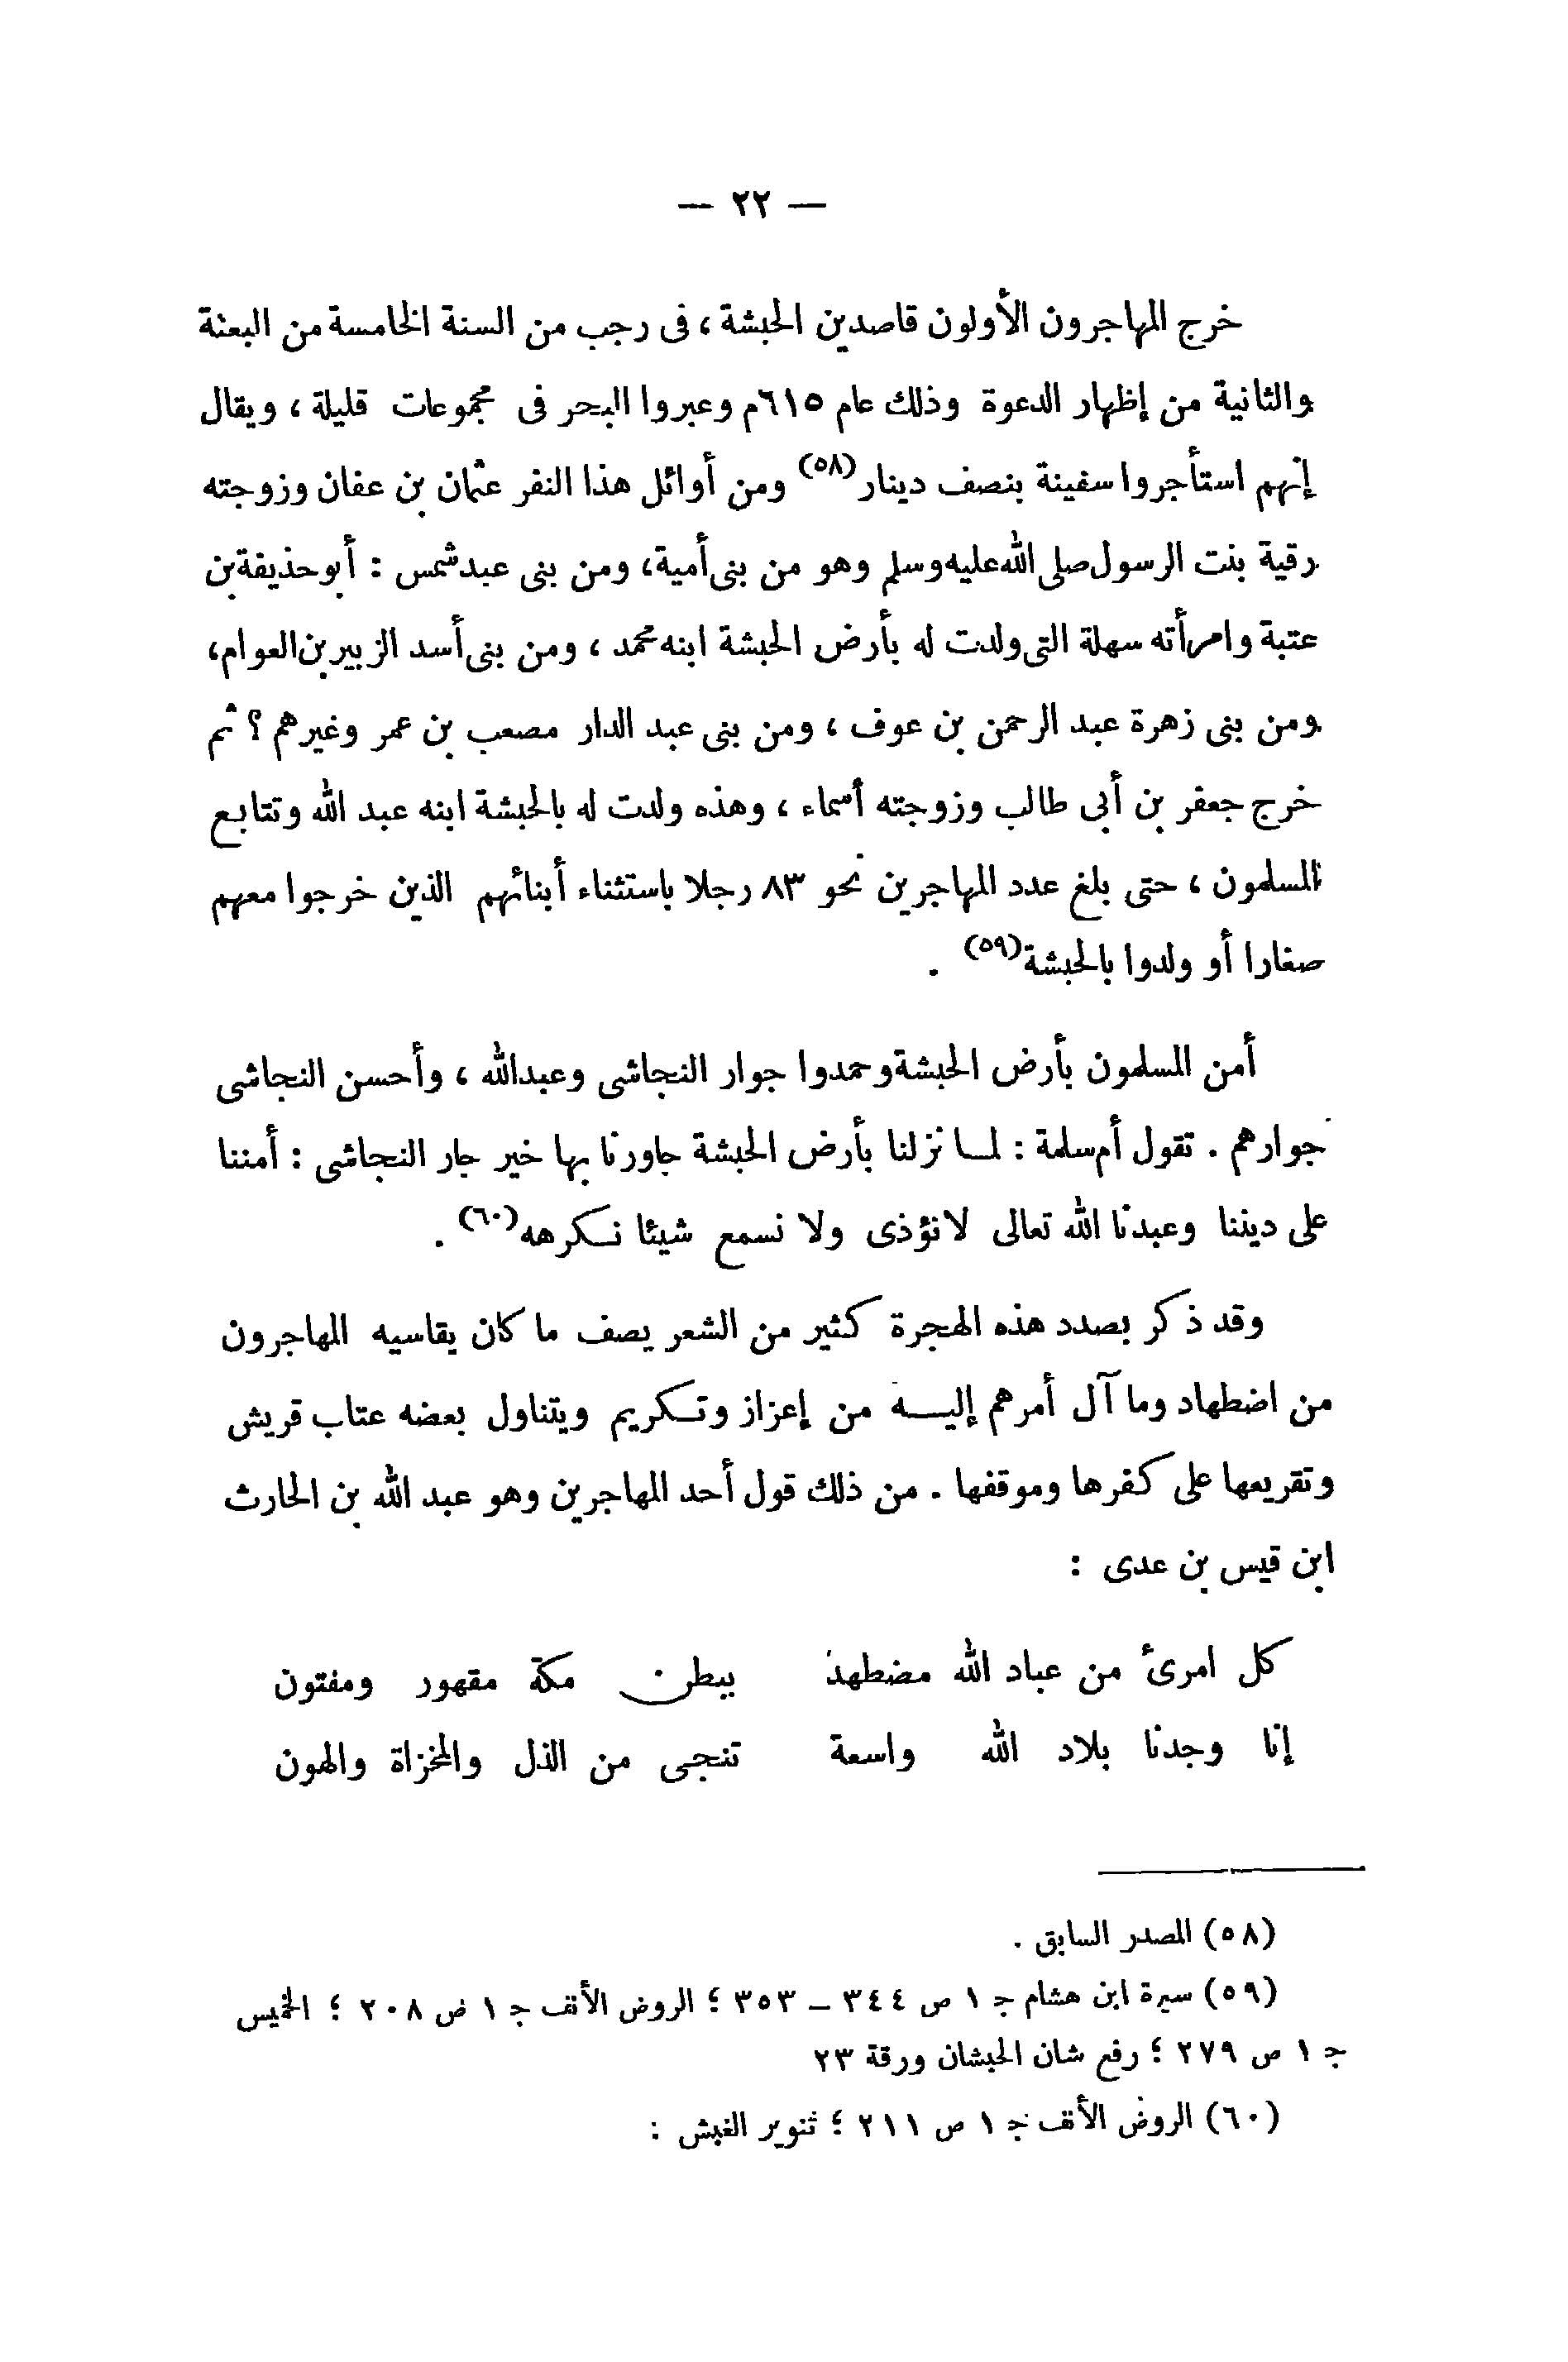 — ٢٢ —
خرج المهاجرون الأولون قاصدين الحبشة ، فى رجب من السنة الخامسة من البعثة
والثانية من إظهار الدعوة وذلك عام ٦١٥م وعبروا البحر فى مجموعات قليلة ، ويقال
إنهم استأجروا سفينة بنصف دينار(٥٨) ومن أوائل هذا النفر عثمان بن عفان وزوجته
رقية بنت الرسول صلى الله عليه وسلم وهو من بنى أمية، ومن بنى عبد شمس : أبو حذيفة بن
عتبة وامرأته سهلة التى ولدت له بأرض الحبشة ابنه محمد ، ومن بنى أسد الزبير بن العوام،
ومن بنى زهرة عبد الرحمن بن عوف ، ومن بنى عبد الدار مصعب بن عمر وغيرهم ؟ ثم
خرج جعفر بن أبى طالب وزوجته أسماء ، وهذه ولدت له بالحبشة ابنه عبد الله وتتابع
المسلمون ، حتى بلغ عدد المهاجرين نحو ٨٣ رجلا باستثناء أبنائهم الذين خرجوا معهم
صغارا أو ولدوا بالحبشة(٥٩) .
أمن المسلمون بأرض الحبشة وحمدوا جوار النجاشى وعبدالله ، وأحسن النجاشى
جوارهم . تقول أم سلمة : لما نزلنا بأرض الحبشة جاورنا بها خير جار النجاشى : أمننا
على ديننا وعبدنا الله تعالى لا نؤذى ولا نسمع شيئا نكرهه(٦٠) .
وقد ذكر بصدد هذه الهجرة كثير من الشعر يصف ما كان يقاسيه المهاجرون
من اضطهاد وما آل أمرهم إليه من إعزاز وتكريم ويتناول بعضه عتاب قريش
وتقريعها على كفرها وموقفها . من ذلك قول أحد المهاجرين وهو عبد الله بن الحارث
ابن قيس بن عدى :
كل امرئ من عباد الله مضطهد ببطن مكة مقهور ومفتون
إنا وجدنا بلاد الله واسعة تنجى من الذل والمخزاة والهون
(٥٨) المصدر السابق .
(٥٩) سيرة ابن هشام ج ١ ص ٣٤٤ – ٣٥٣ ؛ الروض الأنف ج ١ ص ٢٠٨ ؛ الخميس
ج ١ ص ٢٧٩ ؛ رفع شان الحبشان ورقة ٢٣
(٦٠) الروض الأنف ج ١ ص ٢١١ ؛ تنوير الغبش :